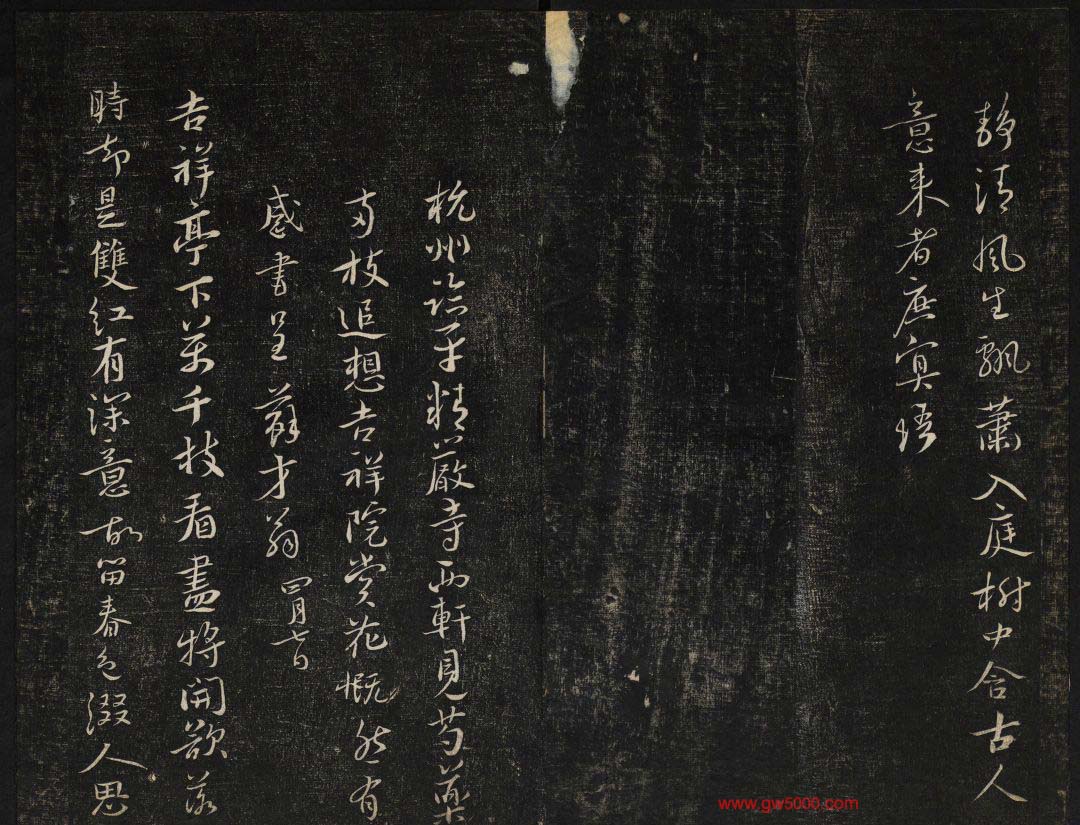 静清風生飄蕭入庭樹中含古人
意来者庶冥悟
杭州臨平精嚴寺西軒見芍藥
两枝追想吉祥院赏花慨然有
感書呈蘇才翁 四月七日
吉祥亭下萬千枝看盡将開欲落
時却是雙紅有深意故留春色綴人思
www.gw5000.com